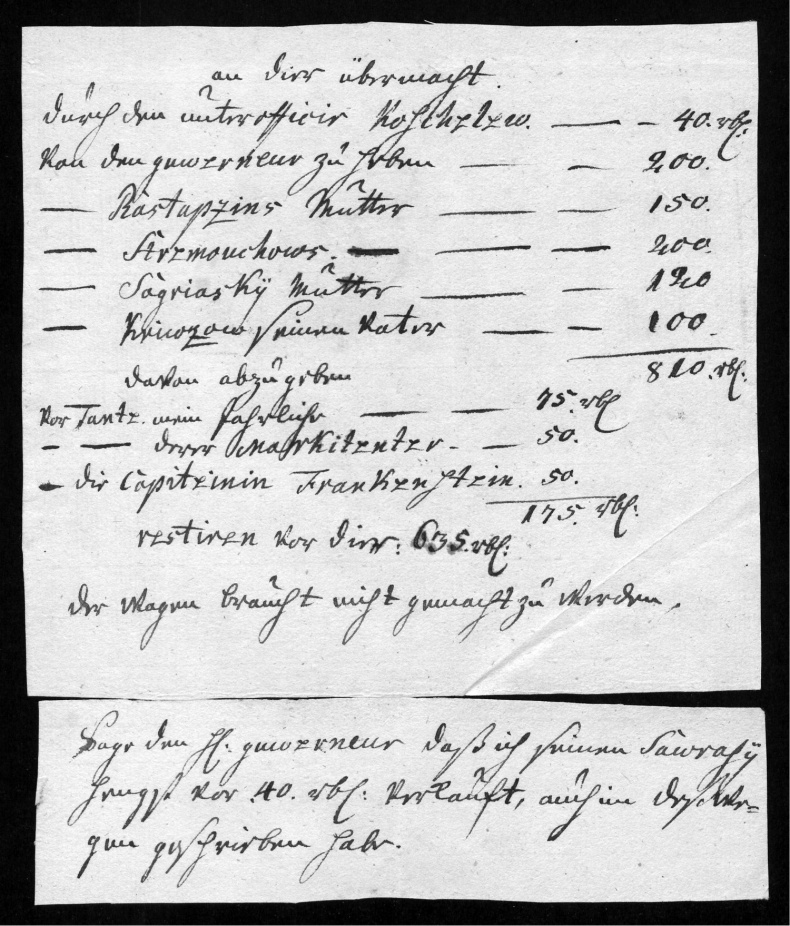 an dier übermacht.
durch den unterofficir Koschelew. — – 40. rbl:
Von den guwerneur zu heben — – 200.
— Rastapzins Mutter — – 150.
— Arzmouchows. — — – 200.
— Sagriasky Mutter — – 120
— Kriwozow seinen Vater — – 100.
davon abzugeben 810. rbl:
vor Tantz. mein jahrliche — – 75. rbl
– — derer Markitenter – – 50.
– die Capiteinin Frankenstein. 50.
175. rbl:
restiren vor dier: 635. rbl:
der Wagen braucht nicht gemacht zu werden.
Sage den H: guwerneur daß ich seinen Sawrasy
hengst vor 40. rbl: verkauft, auch im deswe=
gen geschrieben habe.